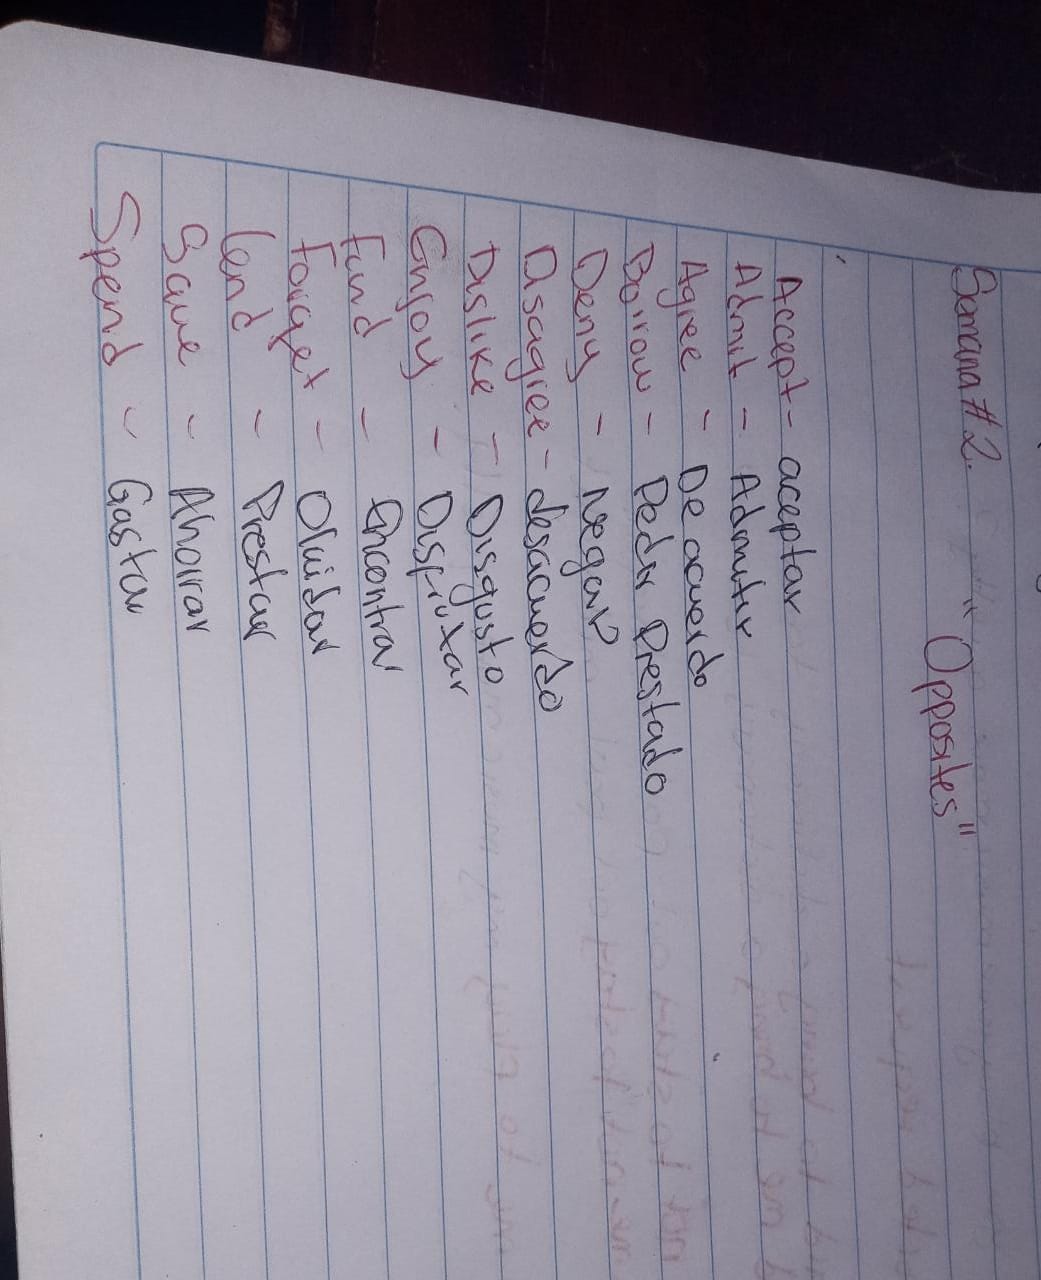 Semana # 2.
"Opposites"
Accept - aceptar
Admit - Admitir
Agree - De acuerdo
Borrow - Pedir Prestado
Deny - Negar
Disagree - desacuerdo
Dislike - Disgusto
Enjoy - Disfrutar
Find - Encontrar
Forget - Olvidar
Lend - Prestar
Save - Ahorrar
Spend - Gastar